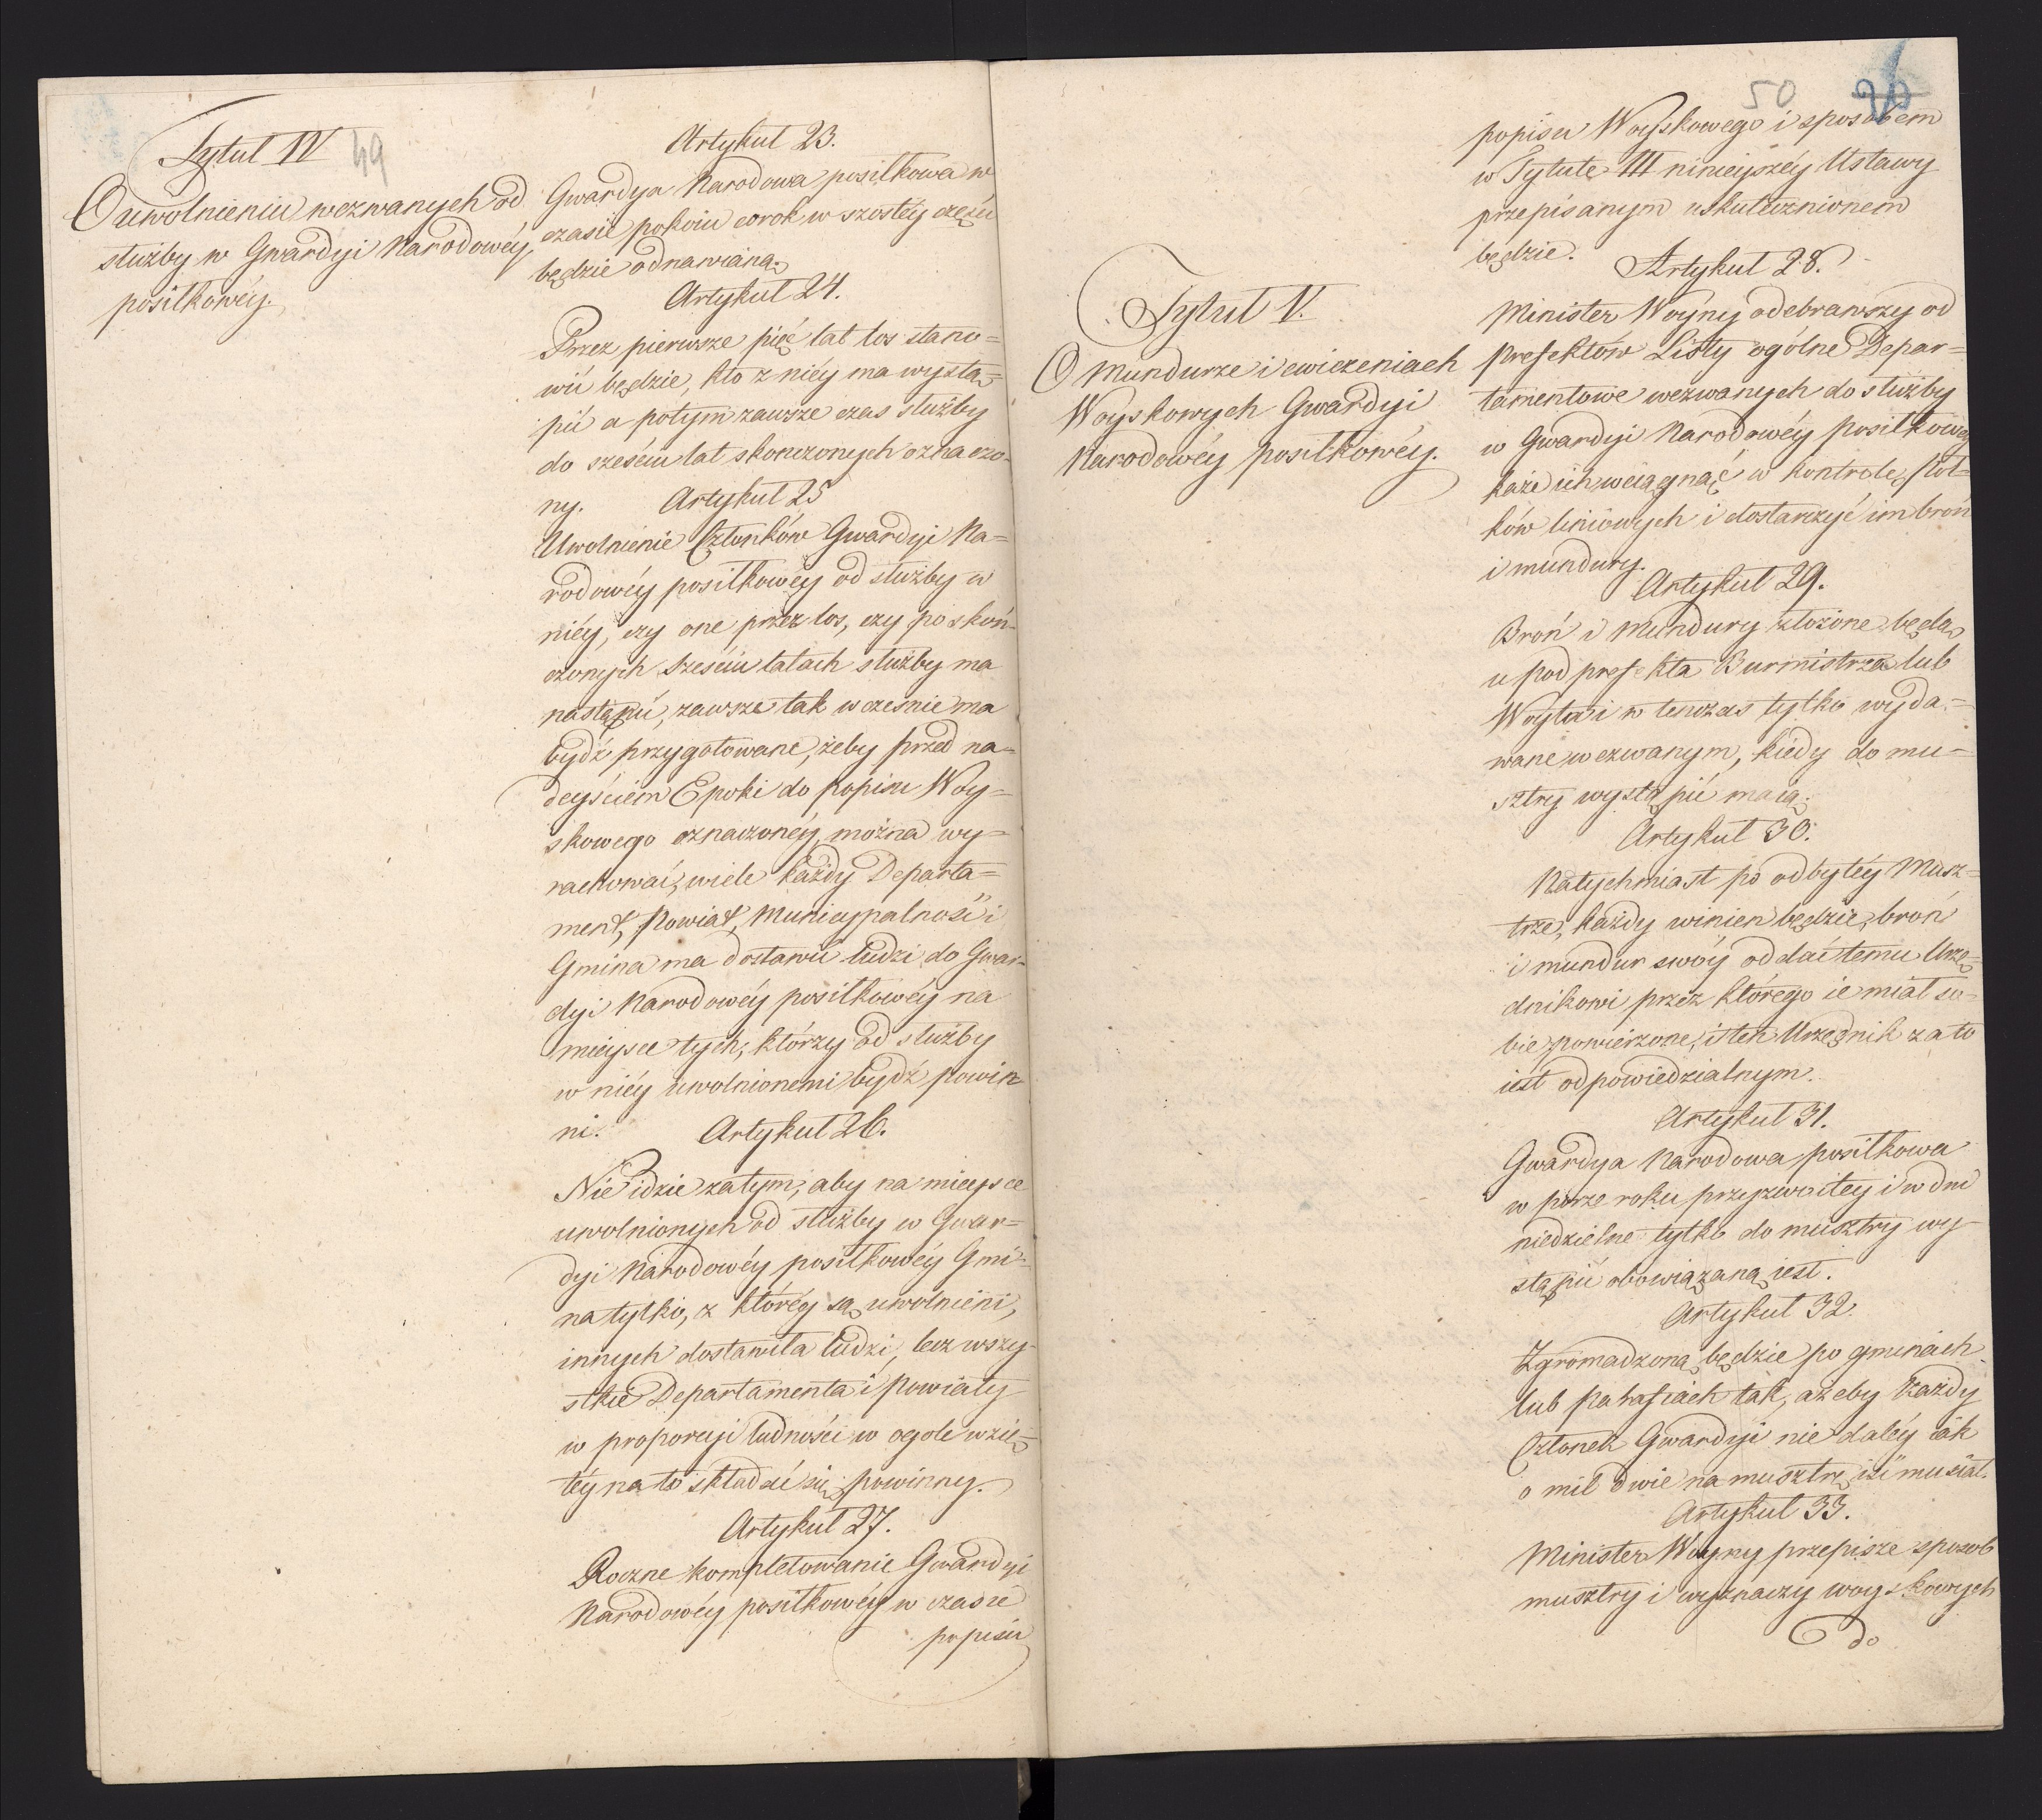 Tytuł IV
49
O uwolnieniu wezwanych od
służby w Gwardyi Narodowéy
posiłkowéy.
Artykuł 23.
Gwardya Narodowa posiłkowa w
czasie pokoiu corok w szostéy części
będzie odnawianą.
Artykuł 24.
Przez pierwsze pięć lat los stano=
wić będzie, kto z niéy ma wystą=
pić a potym zawsze czas służby
do sześciu lat skonczonych oznaczo-
ny. Artykuł 25
Uwolnienie Członków Gwardyi Na=
rodowéy posiłkowéy od służby w
niéy, czy one przez los, czy po skoń-
czonych sześciu latach służby ma
nastąpić, zawsze tak wcześnie ma
bydź przygotowane, żeby przed na=
deyściem Epoki do popisu Woy=
skowego oznaczonéy można wy=
rachować, wiele każdy Departa=
ment, Powiat, Municypalność i
Gmina ma dostawić ludzi do Gwar-
dyi Narodowéy posiłkowéy na
mieysce tych, którzy od służby
w niéy uwolnionemi bydź powin
ni. Artykuł 26.
Nie idzie zatym, aby na mieysce
uwolnionych od służby w Gwar=
dyi Narodowéy posiłkowéy Gmi=
na tylko, z któréy są uwolnieni,
innych dostawiła ludzi, lecz wszy-
stkie Departamenta i Powiaty
w proporcyi ludności w ogole wzię=
téy na to składać się powinny.
Artykuł 27.
Roczne kompletowanie Gwardyi
Narodowéy posiłkowéy w czasie
popisu
50
popisu Woyskowego i sposobem
w Tytule III ninieyszéy Ustawy
przepisanym uskutecznionem
będzie.
Tytuł V.
O Mundurze i cwiczeniach
Woyskowych Gwardyi
Narodowéy posiłkowéy.
Artykuł 28.
Minister Woyny odebrawszy od
Prefektów Listy ogólne Depar=
tamentowe wezwanych do służby
w Gwardyi Narodowéy posiłkowey
każe ich wciągnąć w kontrole Poł=
ków liniowych i dostarczyć im broń
i mundury.
Artykuł 29.
Broń i Mundury złożone będą
u Podprefekta Burmistrza lub
Woyta i w tenczas tylko wyda=
wane wezwanym, kiedy do mu=
sztry wystąpić maią.
Artykuł 30.
Natychmiast po odbytéy Musz=
trze, każdy winien będzie, broń
i mundur swóy oddać temu Urzę=
dnikowi przez którego ie miał so=
bie powierzone, i ten Urzędnik za to
iest odpowiedzialnym.
Artykuł 31.
Gwardya Narodowa posiłkowa
w porze roku przyzwoitey i w dni
niedzielne tylko do musztry wy-
stąpić obowiązaną iest.
Artykuł 32.
Zgromadzoną będzie po gminach
lub Parafiach tak, ażeby każdy
Członek Gwardyi nie daléy iak
o mil dwie na musztrę iść musiał.
Artykuł 33.
Minister Woyny przepisze sposob
musztry i wyznaczy woyskowych
do